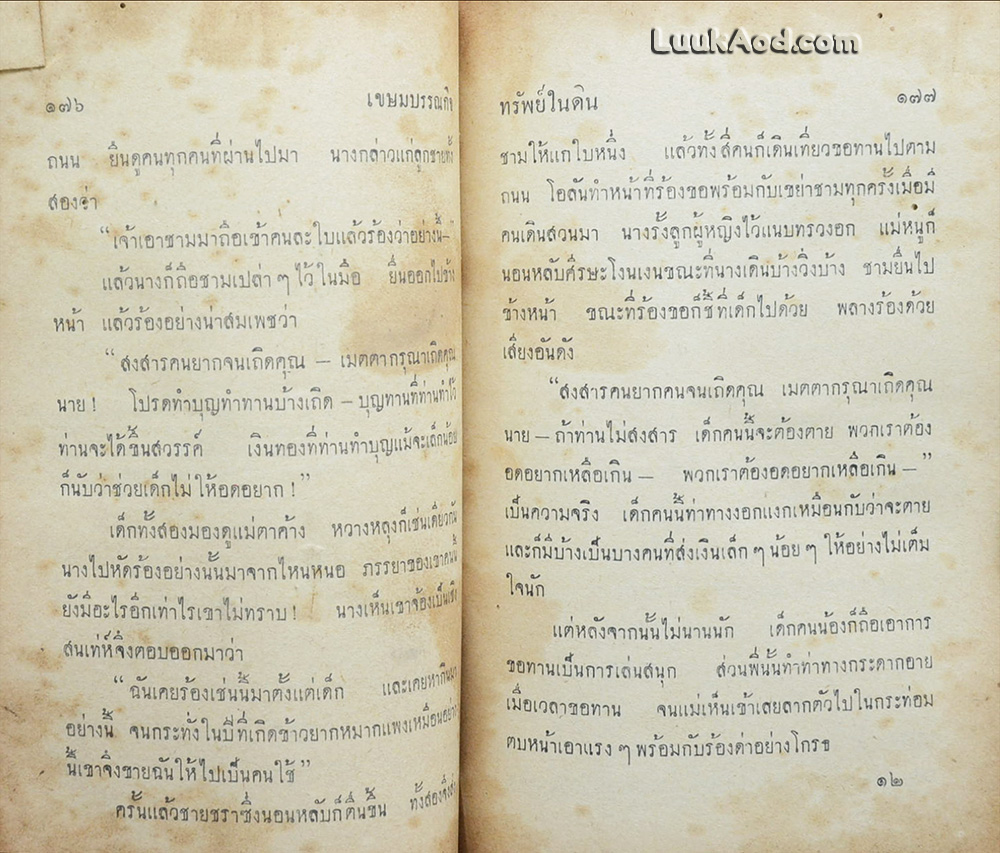 LuukAod.com
๑๗๖ เขษมบรรณกิจ
ถนน ยืนดูคนทุกคนที่ผ่านไปมา นางกล่าวแก่ลูกชายทั้ง
สองว่า
“เจ้าเอาชามมาถือเข้าคนละใบแล้วร้องว่าอย่างนี้–”
แล้วนางก็ถือชามเปล่า ๆ ไว้ในมือ ยื่นออกไปข้าง
หน้า แล้วร้องอย่างน่าสมเพชว่า
“สงสารคนยากจนเถิดคุณ – เมตตากรุณาเถิดคุณ
นาย ! โปรดทำบุญทำทานบ้างเถิด – บุญทานที่ท่านทำไว้
ท่านจะได้ขึ้นสวรรค์ เงินทองที่ท่านทำบุญแม้จะเล็กน้อย
ก็นับว่าช่วยเด็กไม่ให้อดอยาก !”
เด็กทั้งสองมองดูแม่ตาค้าง หวางหลุงก็เช่นเดียวกัน
นางไปหัดร้องอย่างนั้นมาจากไหนหนอ ภรรยาของเขาคนนี้
ยังมีอะไรอีกเท่าไรเขาไม่ทราบ ! นางเห็นเขาจ้องเป็นเชิง
สนเท่ห์จึงตอบออกมาว่า
“ฉันเคยร้องเช่นนี้มาตั้งแต่เด็ก และเคยหากินมา
อย่างนี้ จนกระทั่งในปีที่เกิดข้าวยากหมากแพงเหมือนอย่าง
นี้เขาจึงขายฉันให้ไปเป็นคนใช้”
ครั้นแล้วชายชราซึ่งนอนหลับก็ตื่นขึ้น ทั้งสองจึงส่ง
ทรัพย์ในดิน ๑๗๗
ชามให้แกใบหนึ่ง แล้วทั้งสี่คนก็เดินเที่ยวขอทานไปตาม
ถนน โอลันทำหน้าที่ร้องขอพร้อมกับเขย่าชามทุกครั้งเมื่อมี
คนเดินสวนมา นางรั้งลูกผู้หญิงไว้แนบทรวงอก แม่หนูก็
นอนหลับศีรษะโงนเงนขณะที่นางเดินบ้างวิ่งบ้าง ชามยื่นไป
ข้างหน้า ขณะที่ร้องขอก็ชี้ที่เด็กไปด้วย พลางร้องด้วย
เสียงอันดัง
“สงสารคนยากคนจนเถิดคุณ เมตตากรุณาเถิดคุณ
นาย – ถ้าท่านไม่สงสาร เด็กคนนี้จะต้องตาย พวกเราต้อง
อดอยากเหลือเกิน – พวกเราต้องอดอยากเหลือเกิน –”
เป็นความจริง เด็กคนนี้ท่าทางงอกแงกเหมือนกับว่าจะตาย
และก็มีบ้างเป็นบางคนที่ส่งเงินเล็ก ๆ น้อย ๆ ให้อย่างไม่เต็ม
ใจนัก
แต่หลังจากนั้นไม่นานนัก เด็กคนน้องก็ถือเอาการ
ขอทานเป็นการเล่นสนุก ส่วนพี่นั้นทำท่าทางกระดากอาย
เมื่อเวลาขอทาน จนแม่เห็นเข้าเสยลากตัวไปในกระท่อม
ตบหน้าเอาแรง ๆ พร้อมกับร้องด่าอย่างโกรธ
๑๒